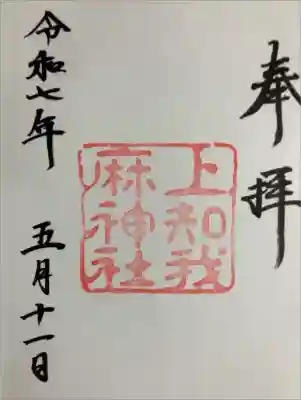 奉拝
上知我
麻神社
令和七年 五月十一日